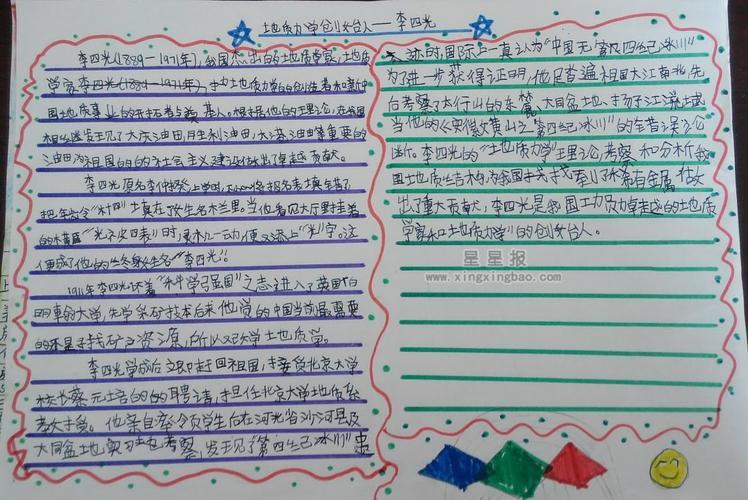 地质力学创始人——李四光
李四光(1889—1971年),我国杰出的地质学家,地质
学家李四光(1889—1971年),地质力学的创造者和新中
国地质事业的开拓者与奠基人。根据他的理论,在我国
相继发现了大庆油田,胜利油田,大港油田等重要的
油田,为祖国的社会主义建设做出了卓越贡献。
李四光原名李仲揆,上学时,将报名表填错了
把年令“十四”填在了姓名栏里,当他看见大厅里挂着
的横匾“光被四表”时,灵机一动,便又添上“光”字。这
便成了他的“终身姓名”李四光。
1911年李四光怀着“科学强国”之志进入了英国伯
明翰大学,先学采矿技术后来他觉的中国当前最需要
的不是找矿之资源,所以又改学地质学。
李四光学成后立即赶回祖国,接受北京大学
校长蔡元培的的聘请,担任北京大学地质系
教授。他亲自率领员学生后在河北省沙河县及
大同盆地实习地考察,发现了“第四纪冰川”
遗迹时,国际上一直认为“中国无第四纪冰川”
为了进一步获得证明,他足迹遍祖国大江南北,先
后考察了太行山的东麓、大同盆地、扬子江流域
当他的《安徽黄山之第四纪冰川》的
李四光的“土地质力学”理论,考察和分析我
国土地质结构,为我国寻找稀有金属做
出了重大贡献,李四光是我国卓越的土地质
学家和土地质力学的创始人。
星星报
www.xingxingbao.com